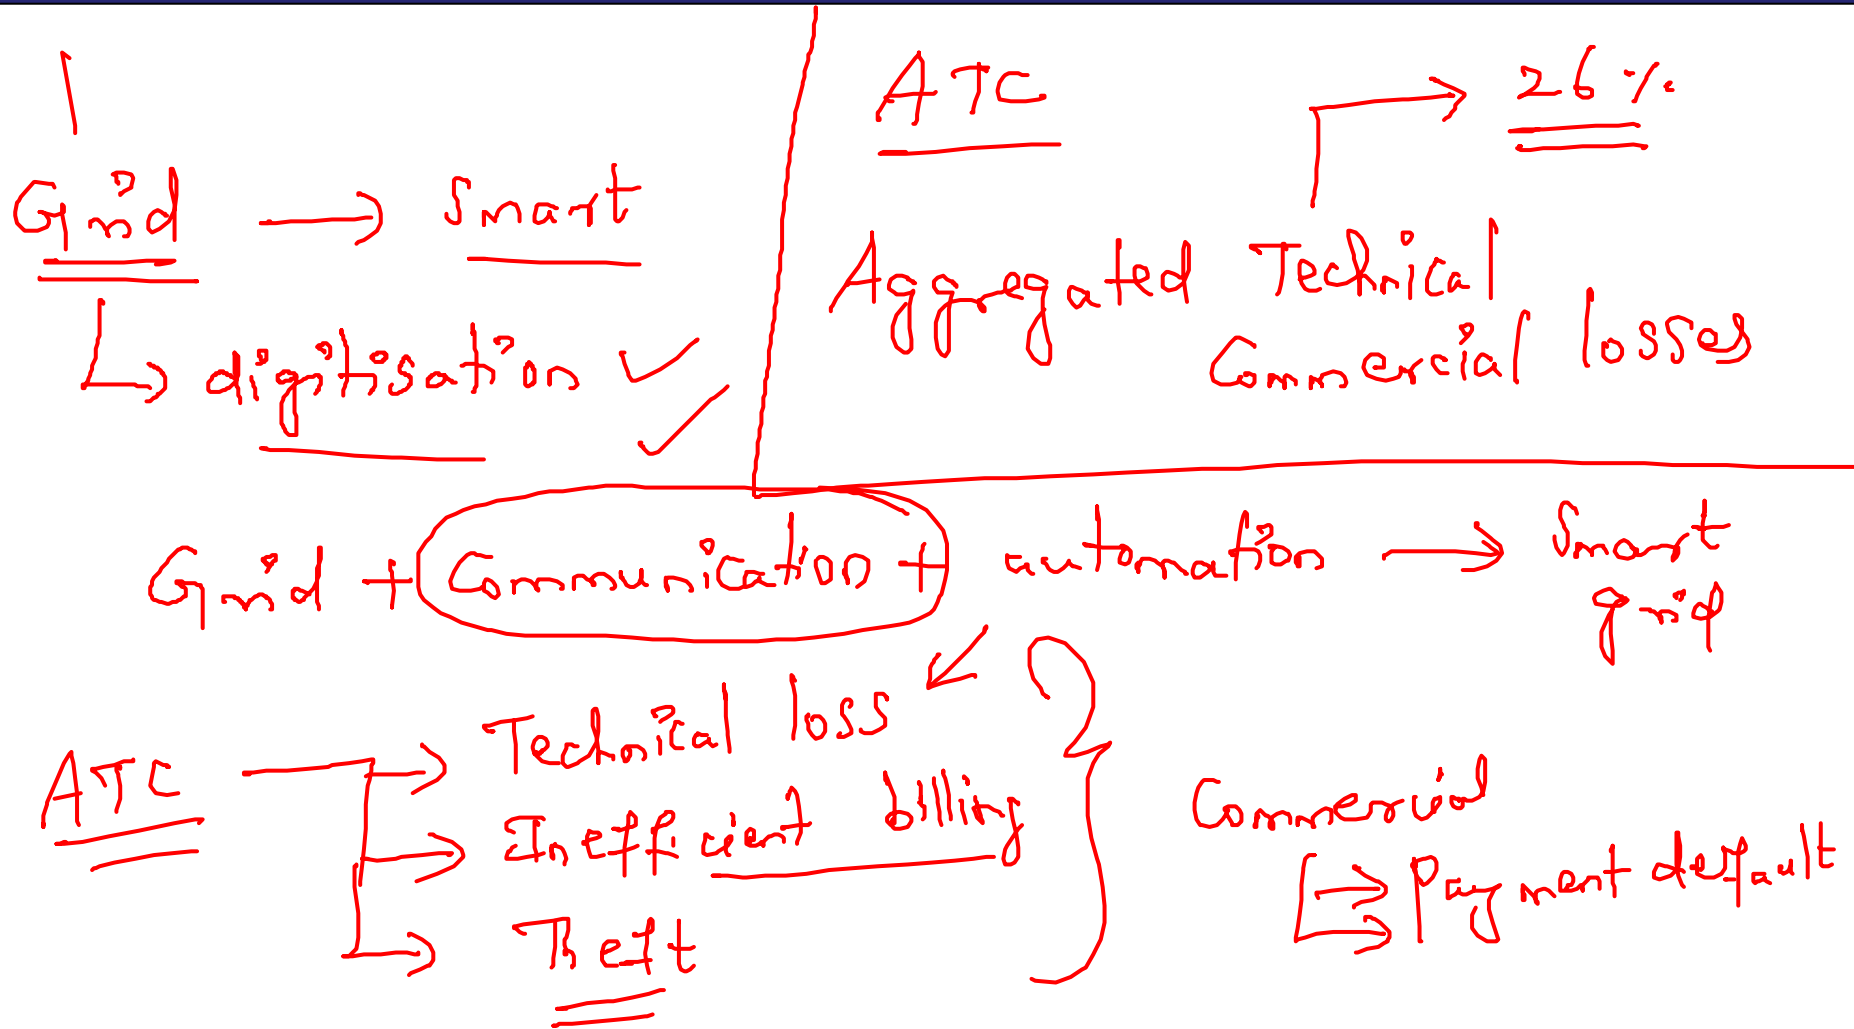 Grid → Smart
↳ digitisation ✓
✓
ATC
→ 26%
Aggregated Technical
Commercial losses
Grid + Communication + automation → Smart
grid
ATC → Technical loss
→ Inefficient billing
→ Theft
Commercial
→ Payment default
→